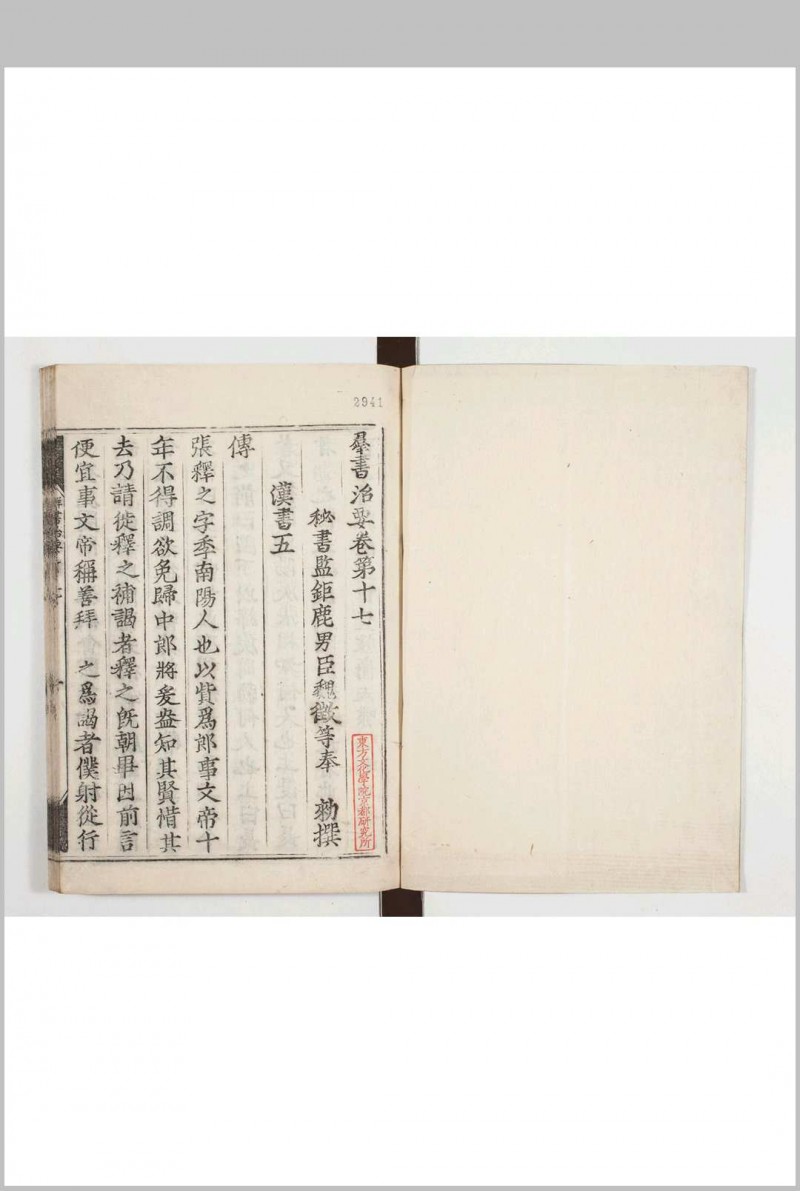 2941
羣書治要卷第十七
秘書監鉅鹿男臣魏徵等奉 勑撰
漢書五
傳
張釋之字季南陽人也以貲爲郎事文帝十
年不得調欲免歸中郎將爰盎知其賢惜其
去乃請徙釋之補謁者釋之既朝畢因前言
便宜事文帝稱善拜 之爲謁者僕射從行
東方文化學院京都研究所